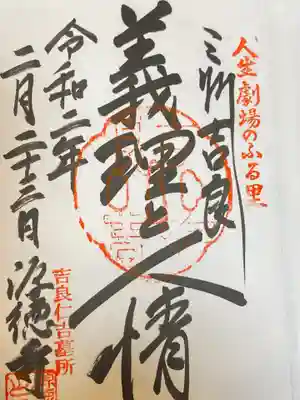 人生劇場のふる里
三州吉良
義理と人情
令和二年
二月二十二日
源徳寺
吉良仁吉墓所